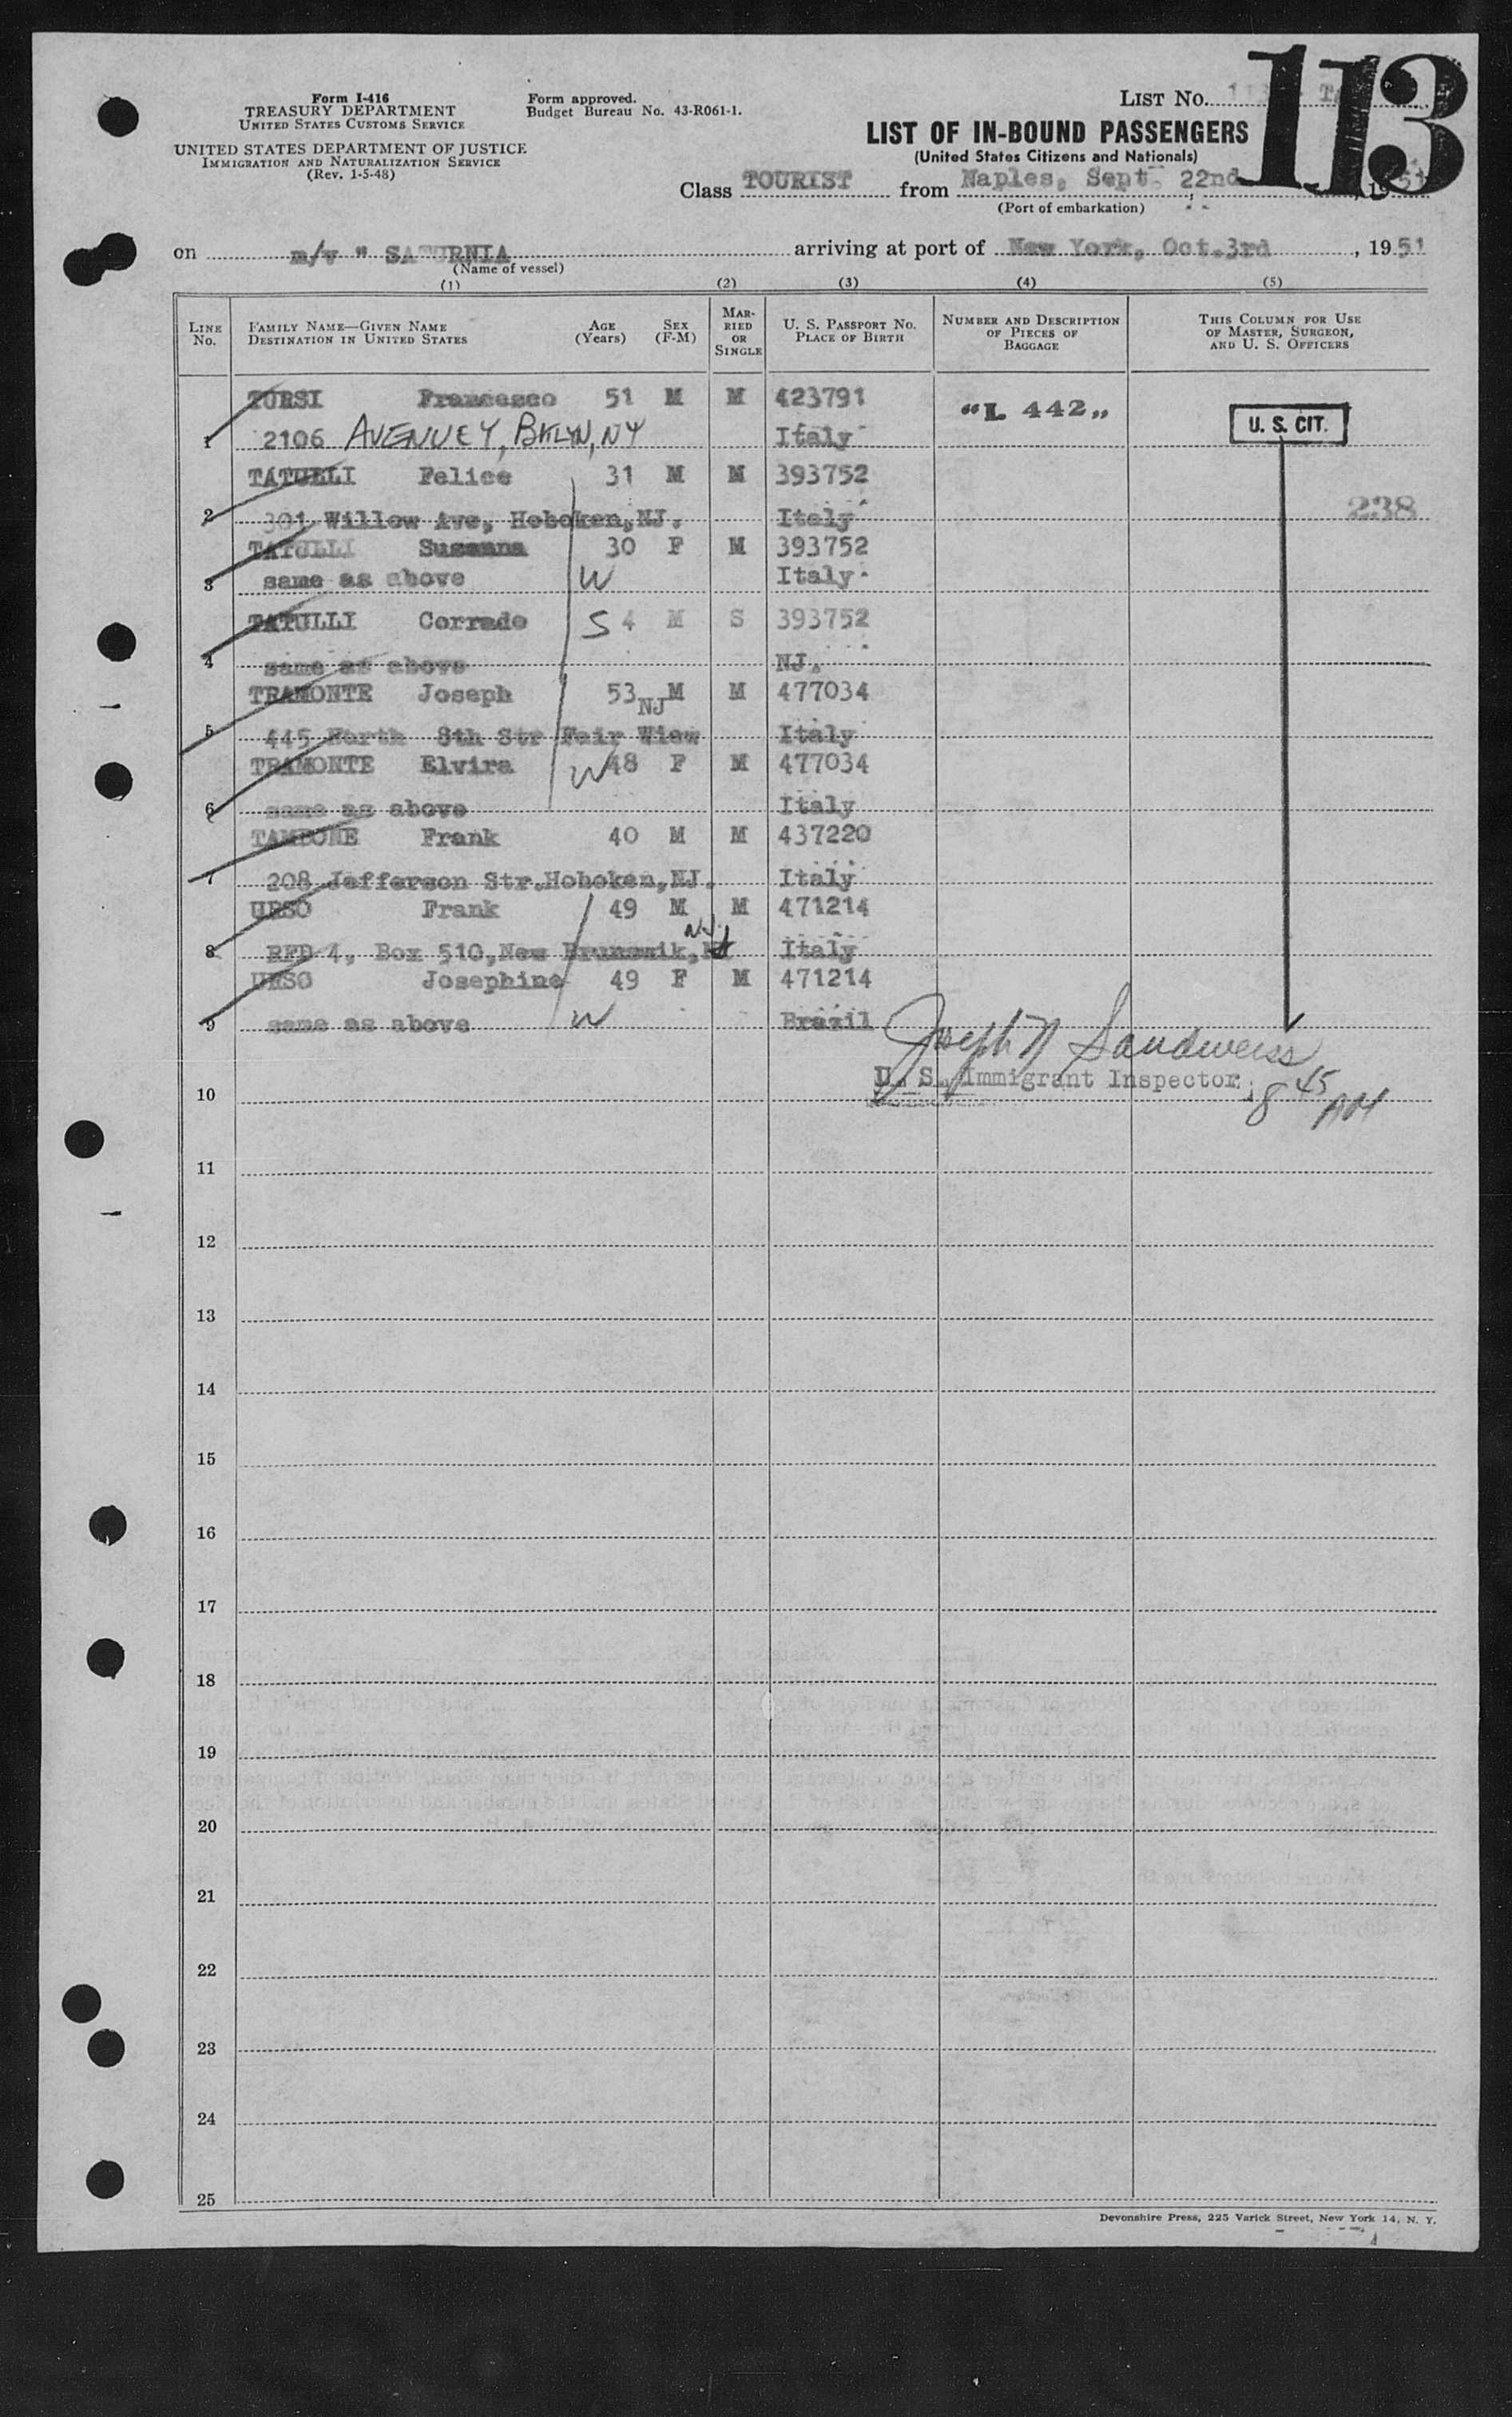 113
Form I-416
TREASURY DEPARTMENT
UNITED STATES CUSTOMS SERVICE
UNITED STATES DEPARTMENT OF JUSTICE
IMMIGRATION AND NATURALIZATION SERVICE
(Rev. 1-5-48)
Form approved.
Budget Bureau No. 43-R061-1.
LIST NO.
LIST OF IN-BOUND PASSENGERS
(United States Citizens and Nationals)
Class TOURIST from Naples, Sept. 22nd, 1951
(Port of embarkation)
on m/v " SATURNIA arriving at port of New York, Oct.3rd, 1951
(Name of vessel)
(1) (2) (3) (4) (5)
LINE NO. FAMILY NAME—GIVEN NAME DESTINATION IN UNITED STATES AGE (Years) SEX (F-M) MARRIED OR SINGLE U. S. PASSPORT NO. PLACE OF BIRTH NUMBER AND DESCRIPTION OF PIECES OF BAGGAGE THIS COLUMN FOR USE OF MASTER, SURGEON, AND U. S. OFFICERS
TURSI Francesco 51 M M 423791 "L 442" U. S. CIT.
1 2106 AVENUE Y, BKLYN, NY Italy
TATULLI Felice 31 M M 393752
2 301 Willow Ave, Hoboken,NJ. Italy 238
TATULLI Susanna 30 F M 393752
3 same as above W Italy
TATULLI Corrado S 4 M S 393752
4 same as above NJ.
TRAMONTE Joseph 53 NJ M M 477034
5 445 North 8th Str Fair View Italy
TRAMONTE Elvira W 48 F M 477034
6 same as above Italy
TAMBONE Frank 40 M M 437220
7 208 Jefferson Str.Hoboken,NJ. Italy
URSO Frank 49 M M 471214
8 RFD 4, Box 510,New Brunswik, NJ Italy
URSO Josephine 49 F M 471214
9 same as above W Brazil
Joseph N Sandweiss
U. S. Immigrant Inspector
8 45 AM
10
11
12
13
14
15
16
17
18
19
20
21
22
23
24
25
Devonshire Press, 225 Varick Street, New York 14, N. Y.